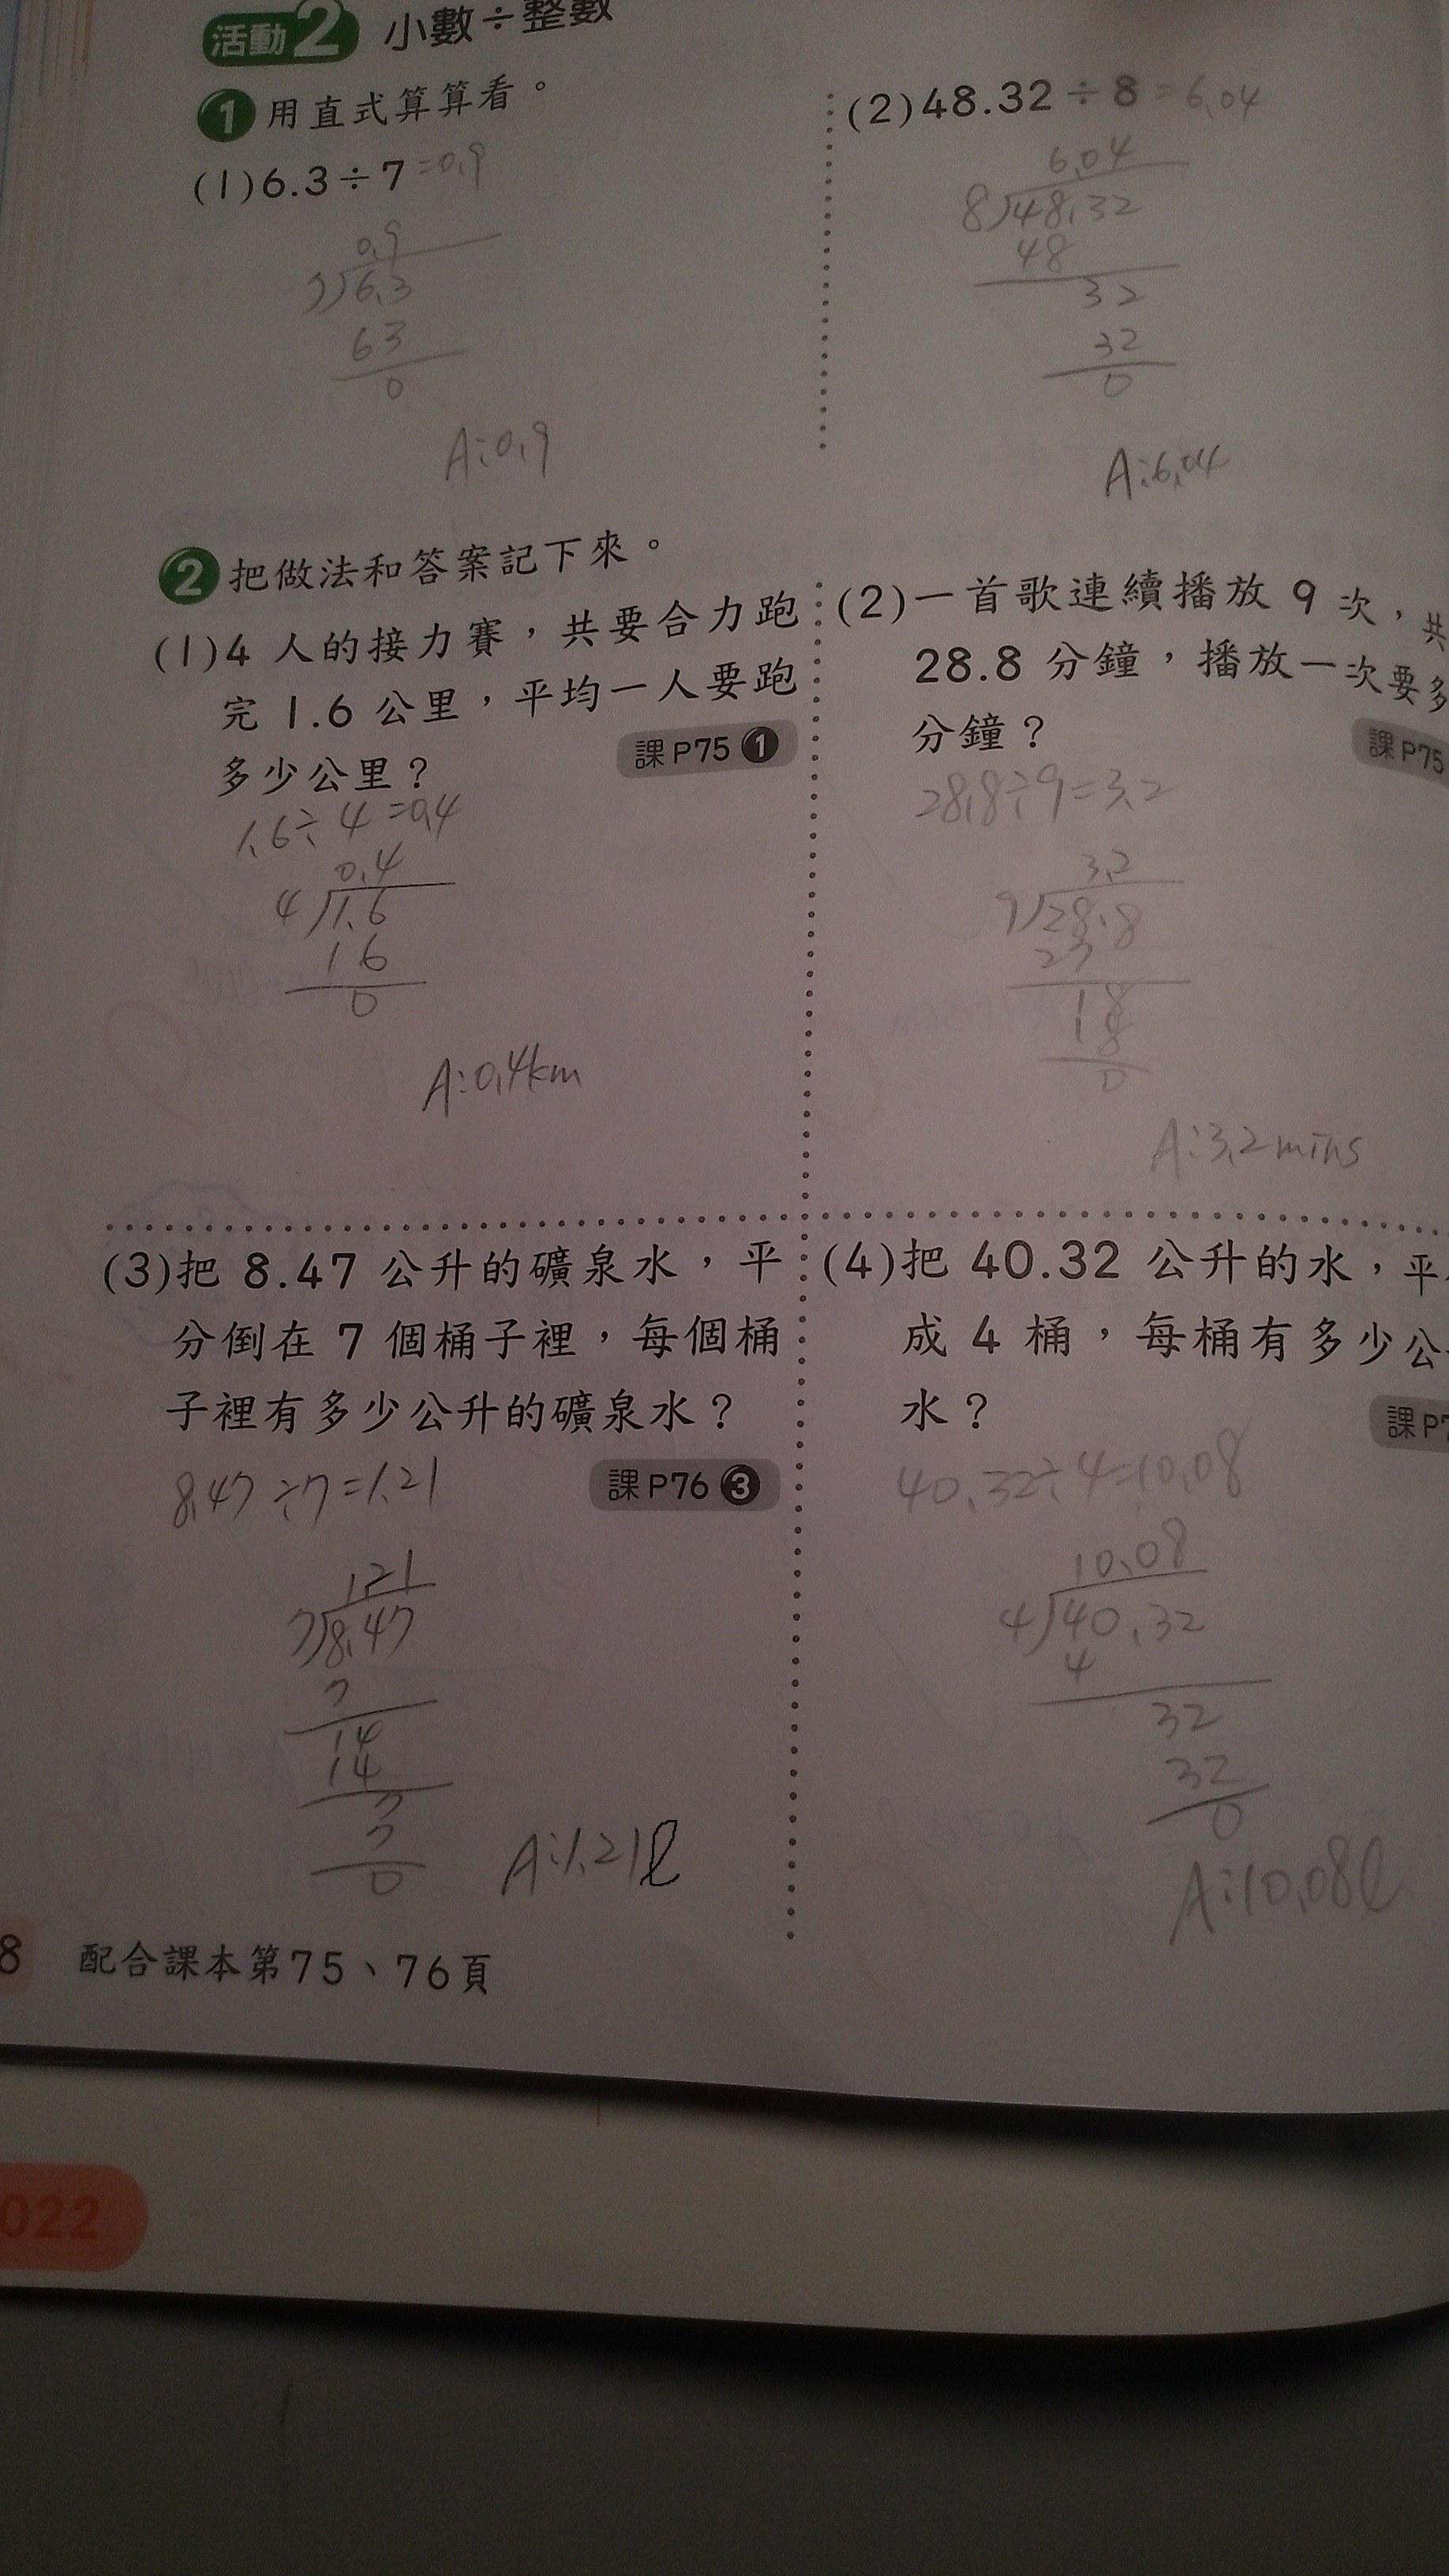 活動2 小數÷整數
1 用直式算算看。
(1)6.3÷7=0.9
0.9
7)6.3
63
0
A:0.9
(2)48.32÷8=6.04
6.04
8)48.32
48
32
32
0
A:6.04
2 把做法和答案記下來。
(1)4 人的接力賽，共要合力跑
完 1.6 公里，平均一人要跑
多少公里？
課P75 1
1.6÷4=0.4
0.4
4)1.6
1 6
0
A:0.4km
(2)一首歌連續播放 9 次，共
28.8 分鐘，播放一次要多
分鐘？
課P75
28.8÷9=3.2
3.2
9)28.8
27
18
18
0
A:3.2mins
(3)把 8.47 公升的礦泉水，平
分倒在 7 個桶子裡，每個桶
子裡有多少公升的礦泉水？
課P76 3
8.47÷7=1.21
1.21
7)8.47
7
14
14
7
7
0
A:1.21l
(4)把 40.32 公升的水，平
成 4 桶，每桶有多少公
水？
課P7
40.32÷4=10.08
10.08
4)40.32
4
32
32
0
A:10.08l
8 配合課本第75、76頁
022